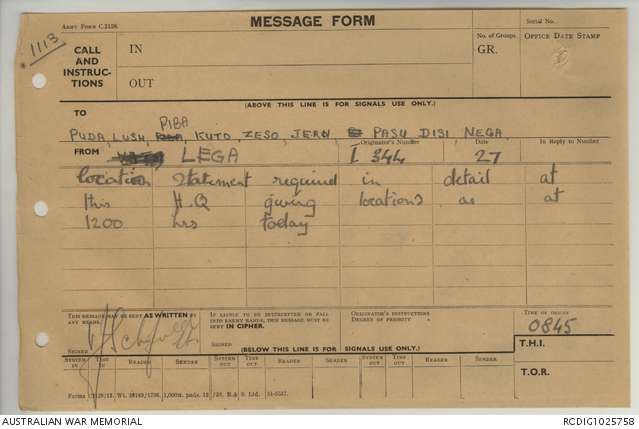 Army Form C.2128.
MESSAGE FORM
Serial No.
1113
CALL AND INSTRUCTIONS
IN
OUT
No. of Groups.
GR.
Office Date Stamp
(ABOVE THIS LINE IS FOR SIGNALS USE ONLY.)
TO
PIBA
PUDA, LUSH, KUTO, ZESO, JERU PASU DISI NEGA
FROM LEGA
Originator's Number
I 344
Date
27
In Reply to Number
location statement required in detail at
this H.Q giving locations as at
1200 hrs today
THIS MESSAGE MAY BE SENT AS WRITTEN BY ANY MEANS.
IF LIABLE TO BE INTERCEPTED OR FALL INTO ENEMY HANDS, THIS MESSAGE MUST BE SENT IN CIPHER.
ORIGINATOR'S INSTRUCTIONS
DEGREE OF PRIORITY
TIME OF ORIGIN
0845
SIGNED
SIGNED
(BELOW THIS LINE IS FOR SIGNALS USE ONLY.)
T.H.I.
SYSTEM IN
TIME IN
READER
SENDER
SYSTEM OUT
TIME OUT
READER
SENDER
SYSTEM OUT
TIME OUT
READER
SENDER
T.O.R.
AUSTRALIAN WAR MEMORIAL
RCDIG1025758